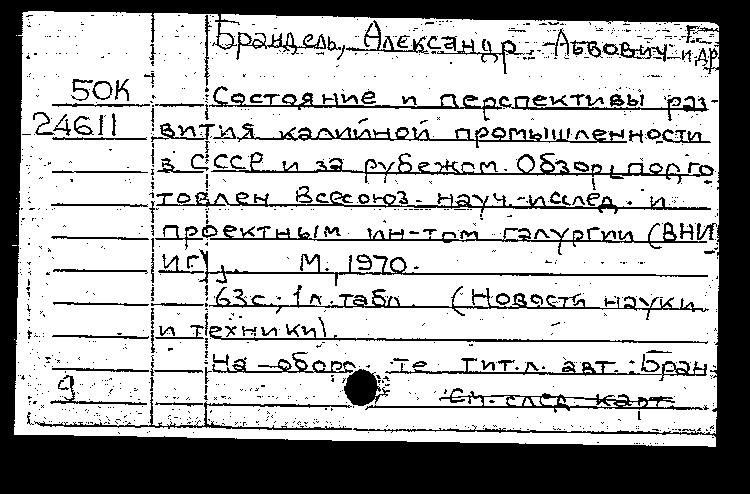 Брандель, Александр Львович и др.
50К Состояние и перспективы раз-
24611 вития калийной промышленности
в СССР и за рубежом. Обзор, подго
товлен Всесоюз. науч.-исслед. и
проектным ин-том галургии (ВНИ
ИГ). М., 1970.
63с.; 1 л. табл. (Новости науки
и техники).
На оборо те тит. л. авт.: Бран-
9 См. след. карт.